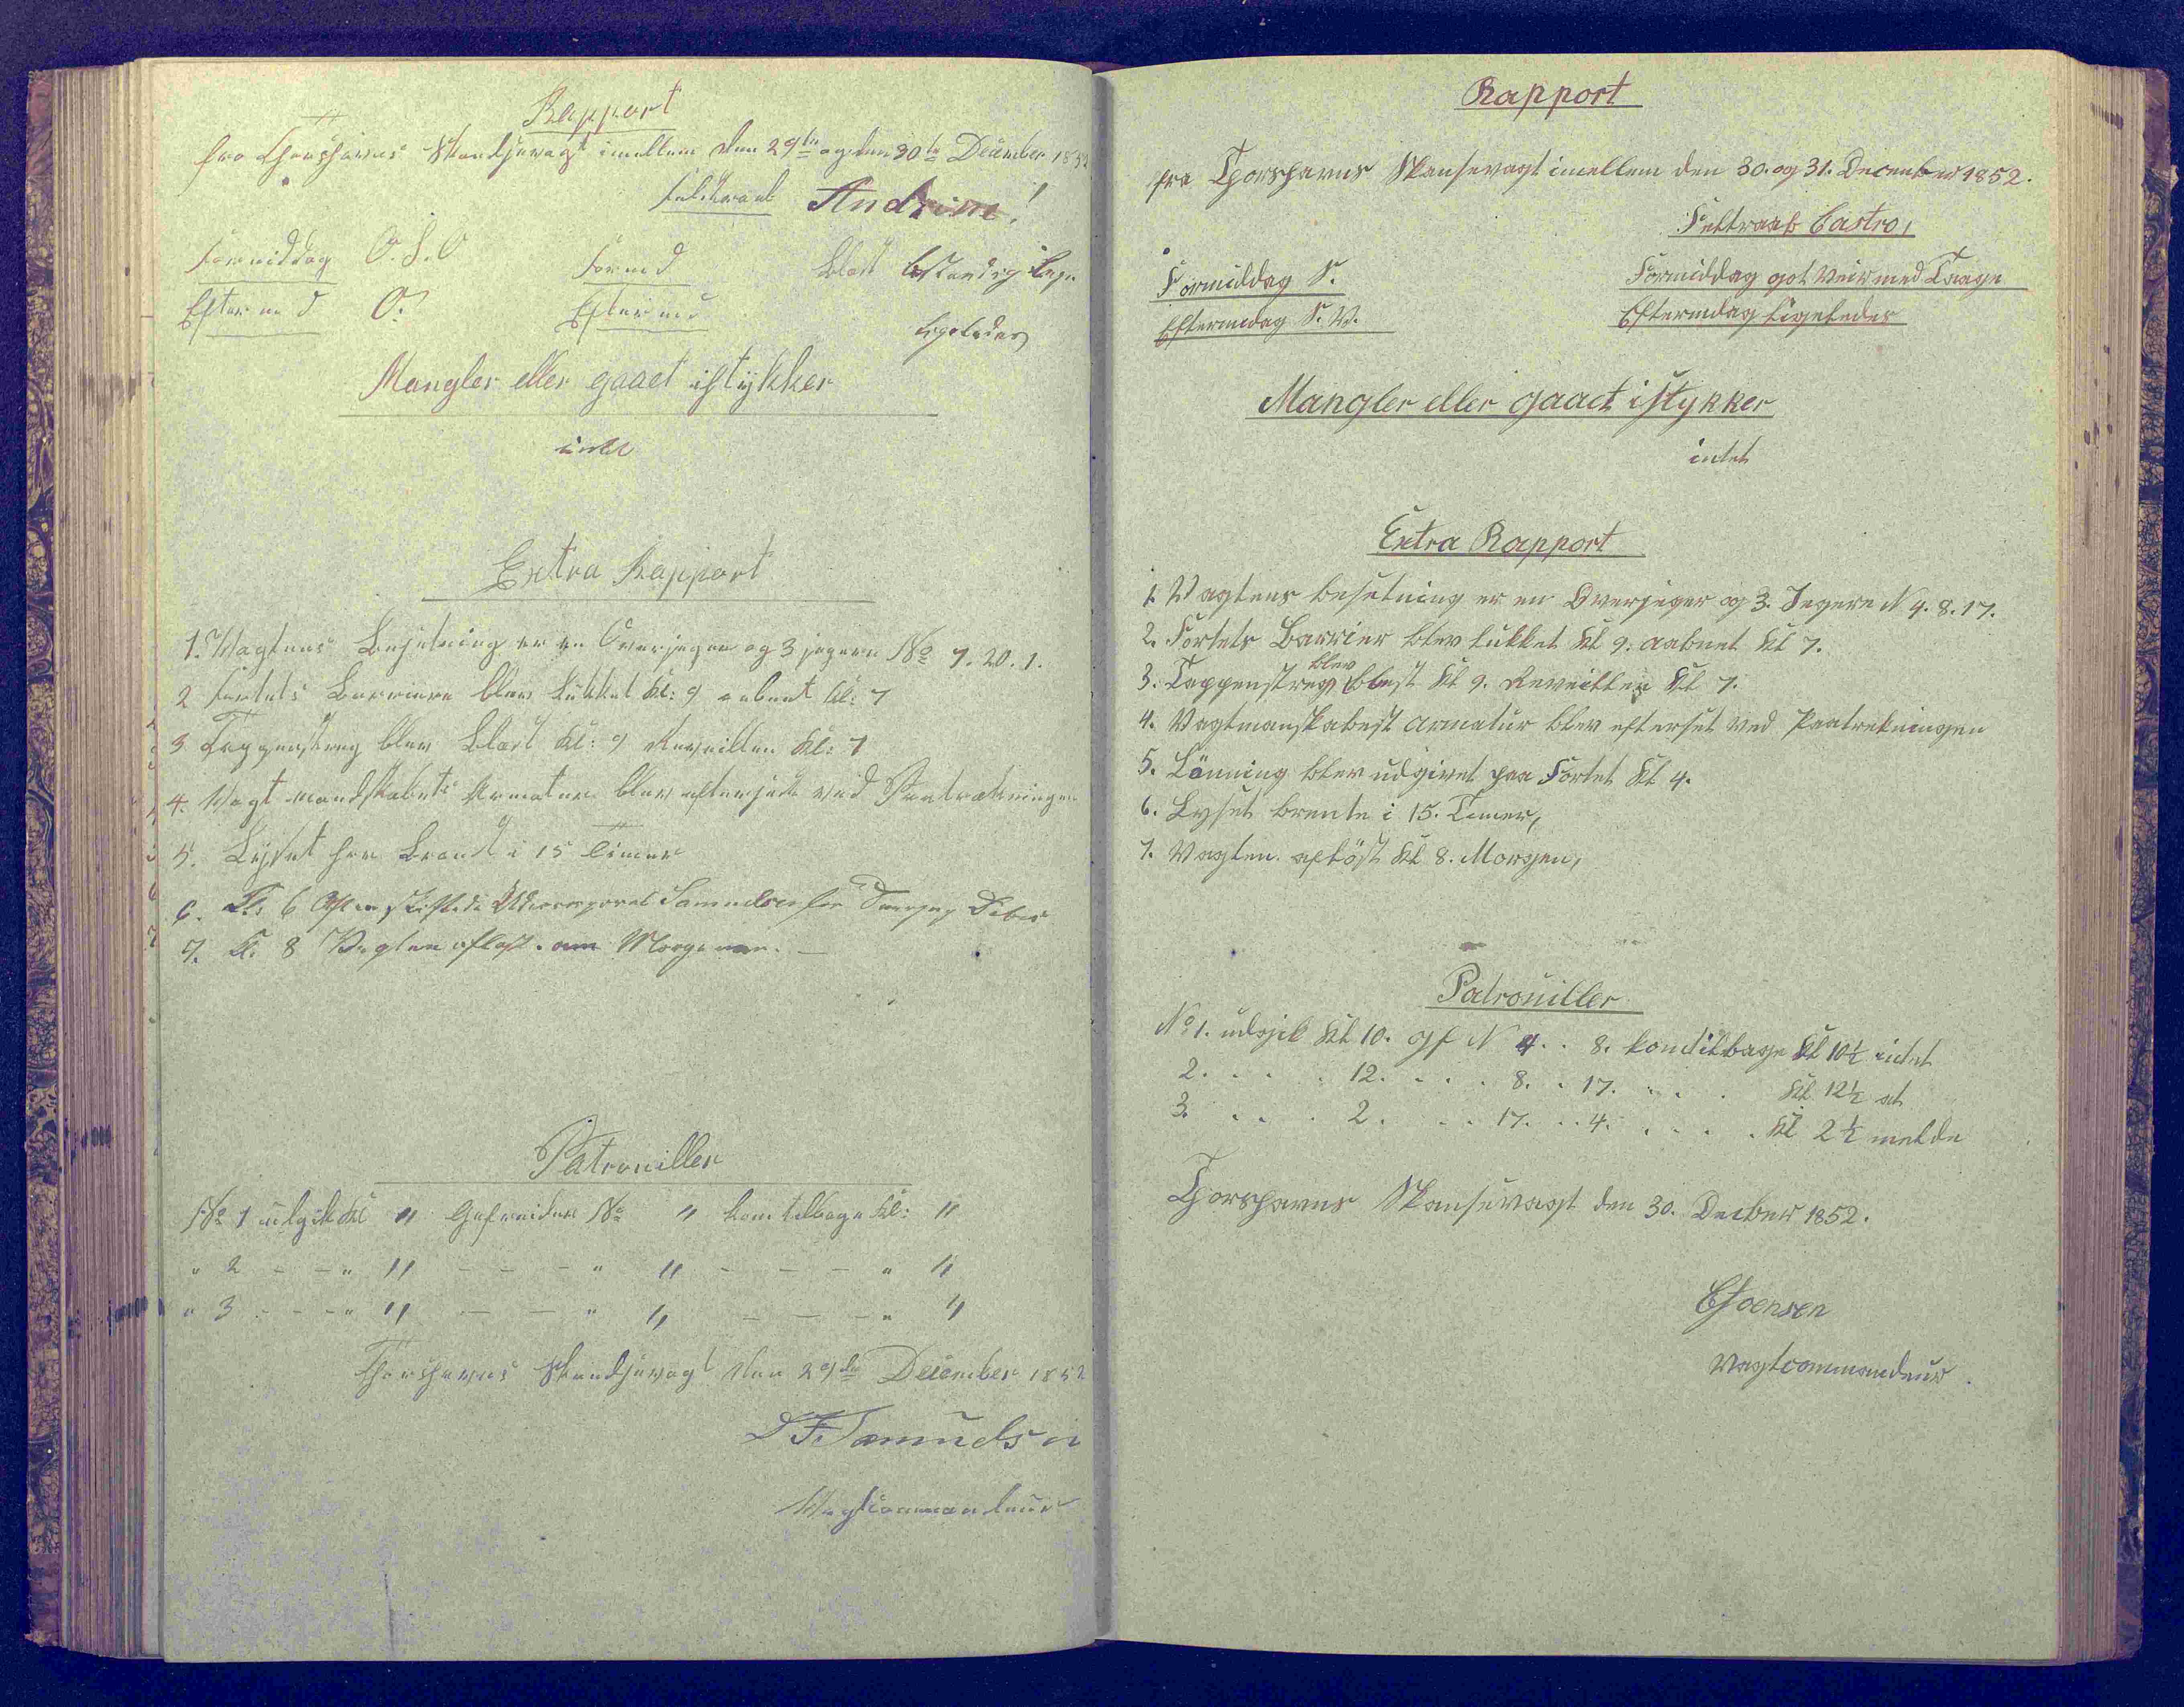 Rapport
fra Thorshavns Skandsevagt imellem den 29de og den 30te December 1852
Feltraab Andrine!
Formiddag O.S.O Formd Blæst bestandig Regn
Eftermd O. Eftermd ligeledes
Mangler eller gaaet istykker
intet
Extra Rapport
1. Vagtens Besetning er en Overjeger og 3 jegere No 7. 20. 1.
2 Fortets Barriere blev lukket Kl: 9 aabnet Kl: 7
3 Tappenstreg blev blæst Kl: 9 Reveillen Kl: 7
4. Vagt mandskabets Armatur blev efterseet ved Paatrækningen
5. Lyset har brændt i 15 Timer
6. Kl. 6 Aften skiftede Undercorporal Samuelsen for Debes
7. Kl. 8 Vagten afløst om Morgenen. —
Patrouiller
No 1 udgik Kl " Gefreider No " kom tilbage Kl: "
" 2 - - " " - - - " " - - - " "
" 3 - - - " " - - " " - - - " "
Thorshavns Skandsevagt den 29de December 1852
Samuelsen
Vagtcommandeur
Rapport
fra Thorshavns Skansevagt imellem den 30. og 31. December 1852.
Feltraab Castro,
Formiddag S. Formiddag got Veir med Taage
Eftermdag S.V. Eftermdag ligeledes
Mangler eller gaaet istykker
intet
Extra Rapport
1. Vagtens besetning er en Overjeger og 3. Jegere N 4. 8. 17.
2. Fortets Barrier blev lukket Kl 9. aabnet Kl 7.
3. Tappenstreg blev blest Kl 9. Reveillen Kl 7.
4. Vagtmanskabest armatur blev efterset ved Paatrekningen
5. Lönning blev udgivet paa Fortet Kl 4.
6. Lyset brente i 15. Timer,
7. Vagten aflöst Kl 8. Morgen,
Patrouiller
No 1. udgik Kl 10. gf N 4. . 8. kom tilbage Kl 10½ intet
2. . . . 12. . . . 8. . 17. . . . Kl 12½ at
3. . . . 2. . . 17. . . 4. . . . . Kl 2½ melde
Thorshavns Skansevagt den 30. Decber 1852.
Joensen
Vagtcommandeur.